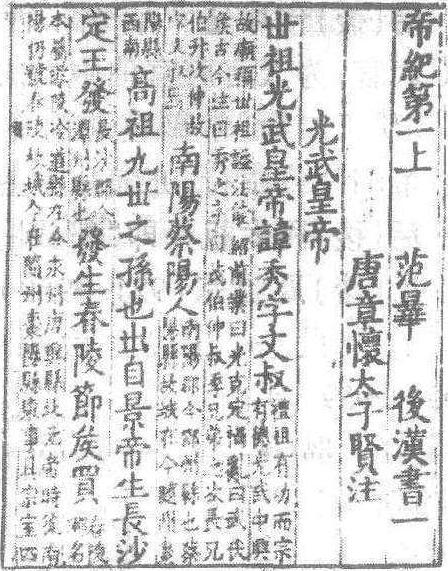 帝紀第一上 范曄 後漢書一
唐章懷太子賢注
光武皇帝
世祖光武皇帝諱秀字文叔
禮祖有功而宗
有德光武中興
故廟稱世祖謚法能紹前業曰光克定禍亂曰武伏
侯古今注曰秀之字曰茂伯仲叔季兄弟之次長兄
伯升次仲故
字文叔焉
南陽蔡陽人
南陽郡今鄧州縣也蔡
陽縣故城在今隨州棗
陽縣
西南
高祖九世之孫也出自景帝生長沙
定王發
長沙郡今
潭州縣也
發生舂陵節侯買
舂陵
鄉名
本屬零陵泠道縣在今永州唐興縣北元帝時徙南
陽仍號舂陵故城今在隨州棗陽縣東事具宗室四